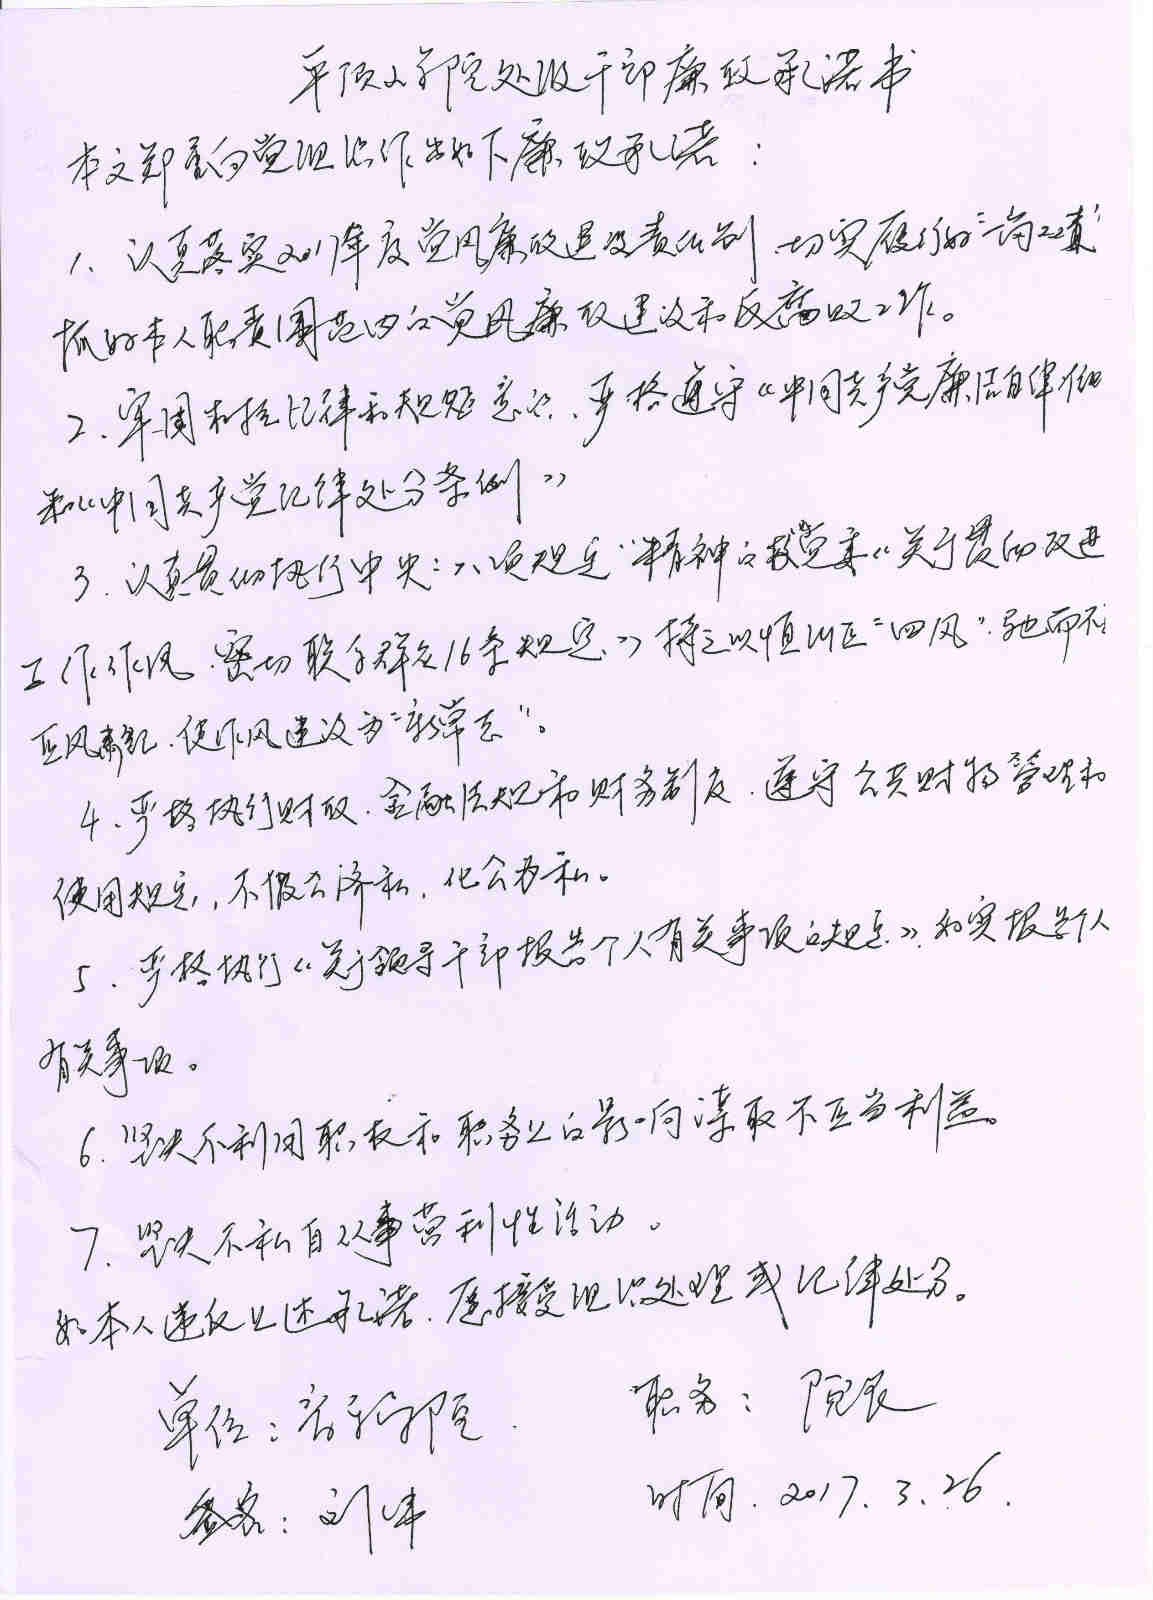 平顶山学院处级干部廉政承诺书
本文郑重向党组织作出如下廉政承诺：
1、认真落实2017年度党风廉政建设责任制，切实履行好“一岗双责”
抓好本人职责围范内的党风廉政建设和反腐败工作。
2、牢固树立纪律和规矩意识、严格遵守《中国共产党廉洁自律
和《中国共产党纪律处分条例》
3、认真贯彻执行中央“八项规定”精神的校党委《关于贯彻改进
工作作风、密切联系群众16条规定、》持之以恒纠正“四风”、驰而不
正风肃纪、使作风建设为“新常态”。
4、严格执行财政、金融法规和财务制度、遵守公共财物管理和
使用规定，不假公济私、化公为私。
5、严格执行《关于领导干部报告个人有关事项的规定》、如实报告个人
有关事项。
6、坚决不利用职权和职务上的影响谋取不正当利益。
7、坚决不私自从事营利性活动。
如本人违反上述承诺、愿接受组织处理或纪律处分。
单位：音乐学院 职务：院长
签名：刘伟 时间.2017.3.26.